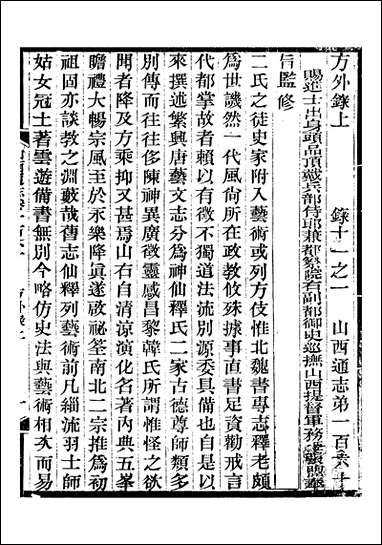 方外錄上　錄十一之一　山西通志弟一百六十
賜進士出身頭品頂戴兵部侍郎兼都察院右副都御史巡撫山西提督軍務兼鹽政奉
旨監修
二氏之徒史家附入藝術或列方伎惟北魏書專志釋老頗
爲世譏然一代風尚所在政教攸殊據事直書足資勸戒言
代都掌故者賴以有徵不獨道法流別源委具備也自是以
來撰述繁興唐藝文志分爲神仙釋氏二家古德尊師類多
別傳而往往侈陳神異廣徵靈感昌黎韓氏所謂惟怪之欲
聞者降及方乘抑又甚焉山右自清涼演化名著內典五峯
瞻禮大暢宗風至於永樂降眞遂啟祕筌南北二宗推爲初
祖固亦談教之淵藪哉舊志仙釋列藝術前凡緇流羽士師
姑女冠土著雲遊備書無別今略仿史法與藝術相次而易